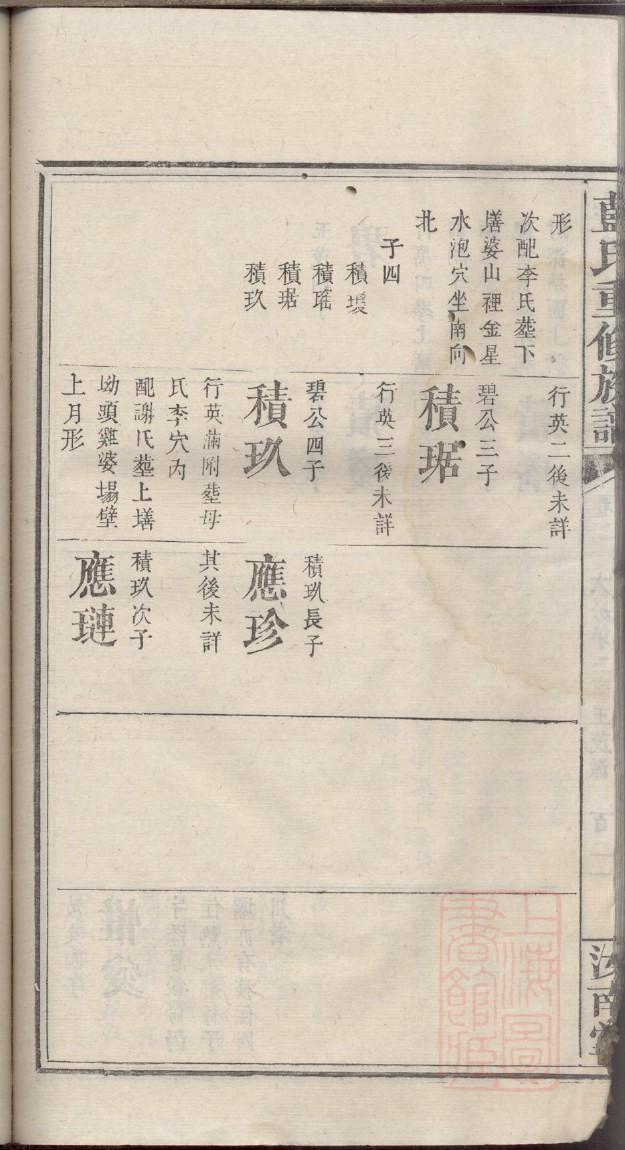 藍氏重修族譜
汝南堂
形
次配李氏塟下
墡婆山裡金星
水泡穴坐南向
北
子四
積瑗
積瑤
積琚
積玖
行英二後未詳
碧公三子
積琚
行英三後未詳
碧公四子
積玖
行英滿附塟母
氏李穴內
配謝氏塟上墡
坳頭雞婆塌壁
上月形
積玖長子
應珍
其後未詳
積玖次子
應璉
上海圖
書館藏